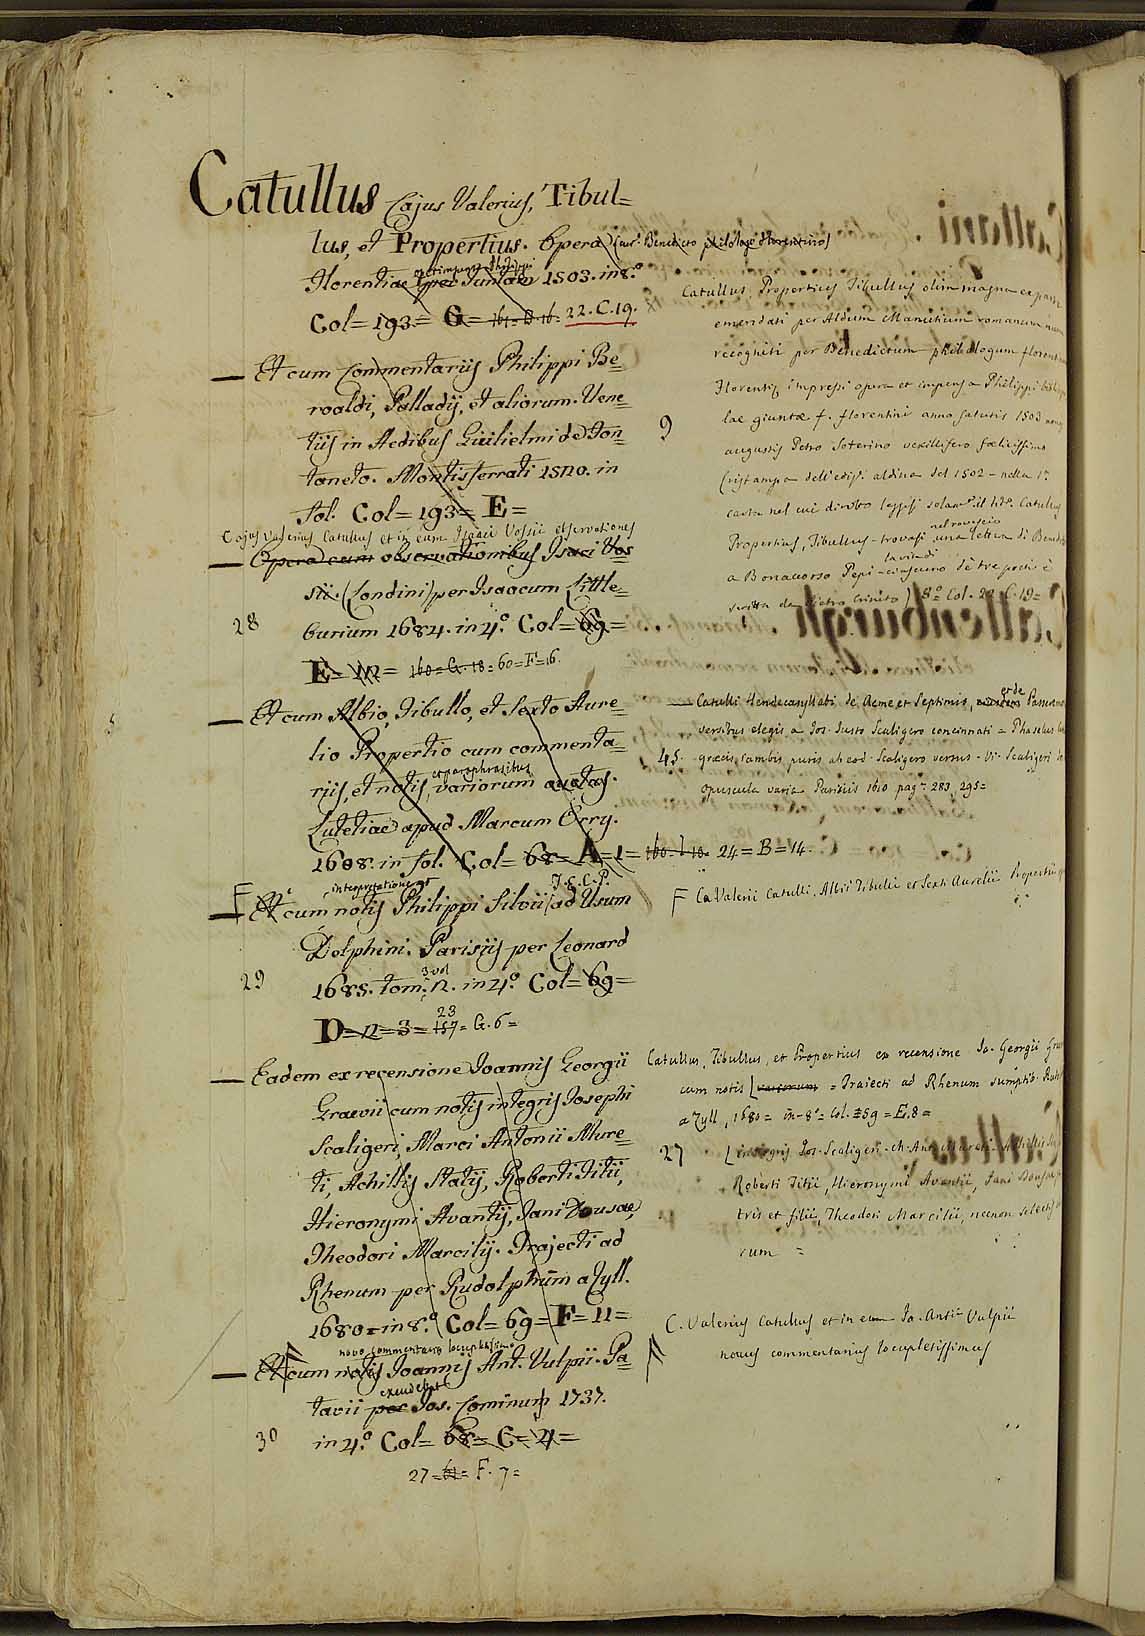 Catullus Cajus Valerius, Tibul=
lus, et Propertius. Opera (cur. Benedicto philologo florentino)
op. et impensa Philippi
Florentiae per Juntam 1503. in 8.o
Col= 193.= G= 161= B. 16= 22. C. 19.
— Et cum Commentariis Philippi Be=
roaldi, Palladij, et aliorum. Vene=
tiis in Aedibus Guilielmi de Fon=
taneto. Montisferrati 1520. in
fol. Col= 193= E=
Cajus Valerius Catullus et in eum Isaaci Vossii observationes
— Opera cum observationibus Isaci Vos=
sii. (Londini) per Isaacum Little=
28 burium 1684. in 4.o Col= 69=
E= 12= 160= G. 18= 60=F=16.
— Et cum Albio, Tibullo, et Sexto Aure=
lio Propertio cum commenta=
et paraphrasibus
rijs, et notis, variorum
Lutetiae apud Marcum Orry.
1608. in fol. Col= 68= A=1= 24=B=14.
interpretatione et J. S. C. P.
F — Et cum notis Philippi Silvii ad Usum
Dolphini. Parisijs per Leonard
3 vol
29 1685. tom. 2. in 4.o Col= 69=
23
D=12=3= 157= G. 6=
— Eadem ex recensione Joannis Georgii
Graevii cum notis integris Josephi
Scaligeri, Marci Antonii Mure=
ti, Achillis Statij, Roberti Titii,
Hieronymi Avantij, Jani Dousae,
Theodori Marcilij. Trajecti ad
Rhenum per Rudolphum a Zyll.
1680= in 8.o Col= 69= F= 11=
novo commentario locupletissimo
— Et cum notis Joannis Ant. Vulpii. Pa=
excudebat
tavii per Jos. Cominum 1737.
30 in 4.o Col= 68= C= 4=
27= = F. 7=
Catullus, Propertius Tibullus olim magna ex parte
emendati per Aldum Manutium romanum nunc
recogniti per Benedictum philologum florentinum
Florentiae impressi opera et impensa Philippi
9 lae giuntae f. florentini anno salutis 1503
augustis Petro Soterino vexillifero foelicissimo
(ristampa dell'ediz. aldina del 1502 – nella 1a
carta nel cui diritto leggesi solamte il tito. Catullus
nel rovescio
Propertius, Tibullus – trovasi una lettera di
la vita di
a Bonacorso Pepi – ciascuno de tre poeti è
scritta da Pietro Crinito) 8.o Col. 22. C. 19=
— Catulli Hendecasyllabi, de Acme et Septimio, et de Passere
versibus elegis a Jos. Justo Scaligero concinnati = Phaselus
45. graecis iambis puris ab eod. Scaligero versus – Vi. Scaligeri
opuscula varia Parisiis 1610 pag. 283, 295=
F Ca. Valerii Catulli, Albii Tibulli et Sexti Aurelii Propertii
Catullus, Tibullus, et Propertius ex recensione Jo. Georgii
cum notis variorum = Traiecti ad Rhenum sumptib.
a Zyll, 1680= in-8o= Col. 59= E. 8=
27 integris Jos. Scaligeri – M. Ant. Mureti –
Roberti Titii, Hieronymi Avantii, Jani Dousae
tris et filii, Theodori Marcilii, necnon selectis
rum =
C. Valerius Catullus et in eum Jo. Ants. Vulpii
novus commentarius locupletissimus